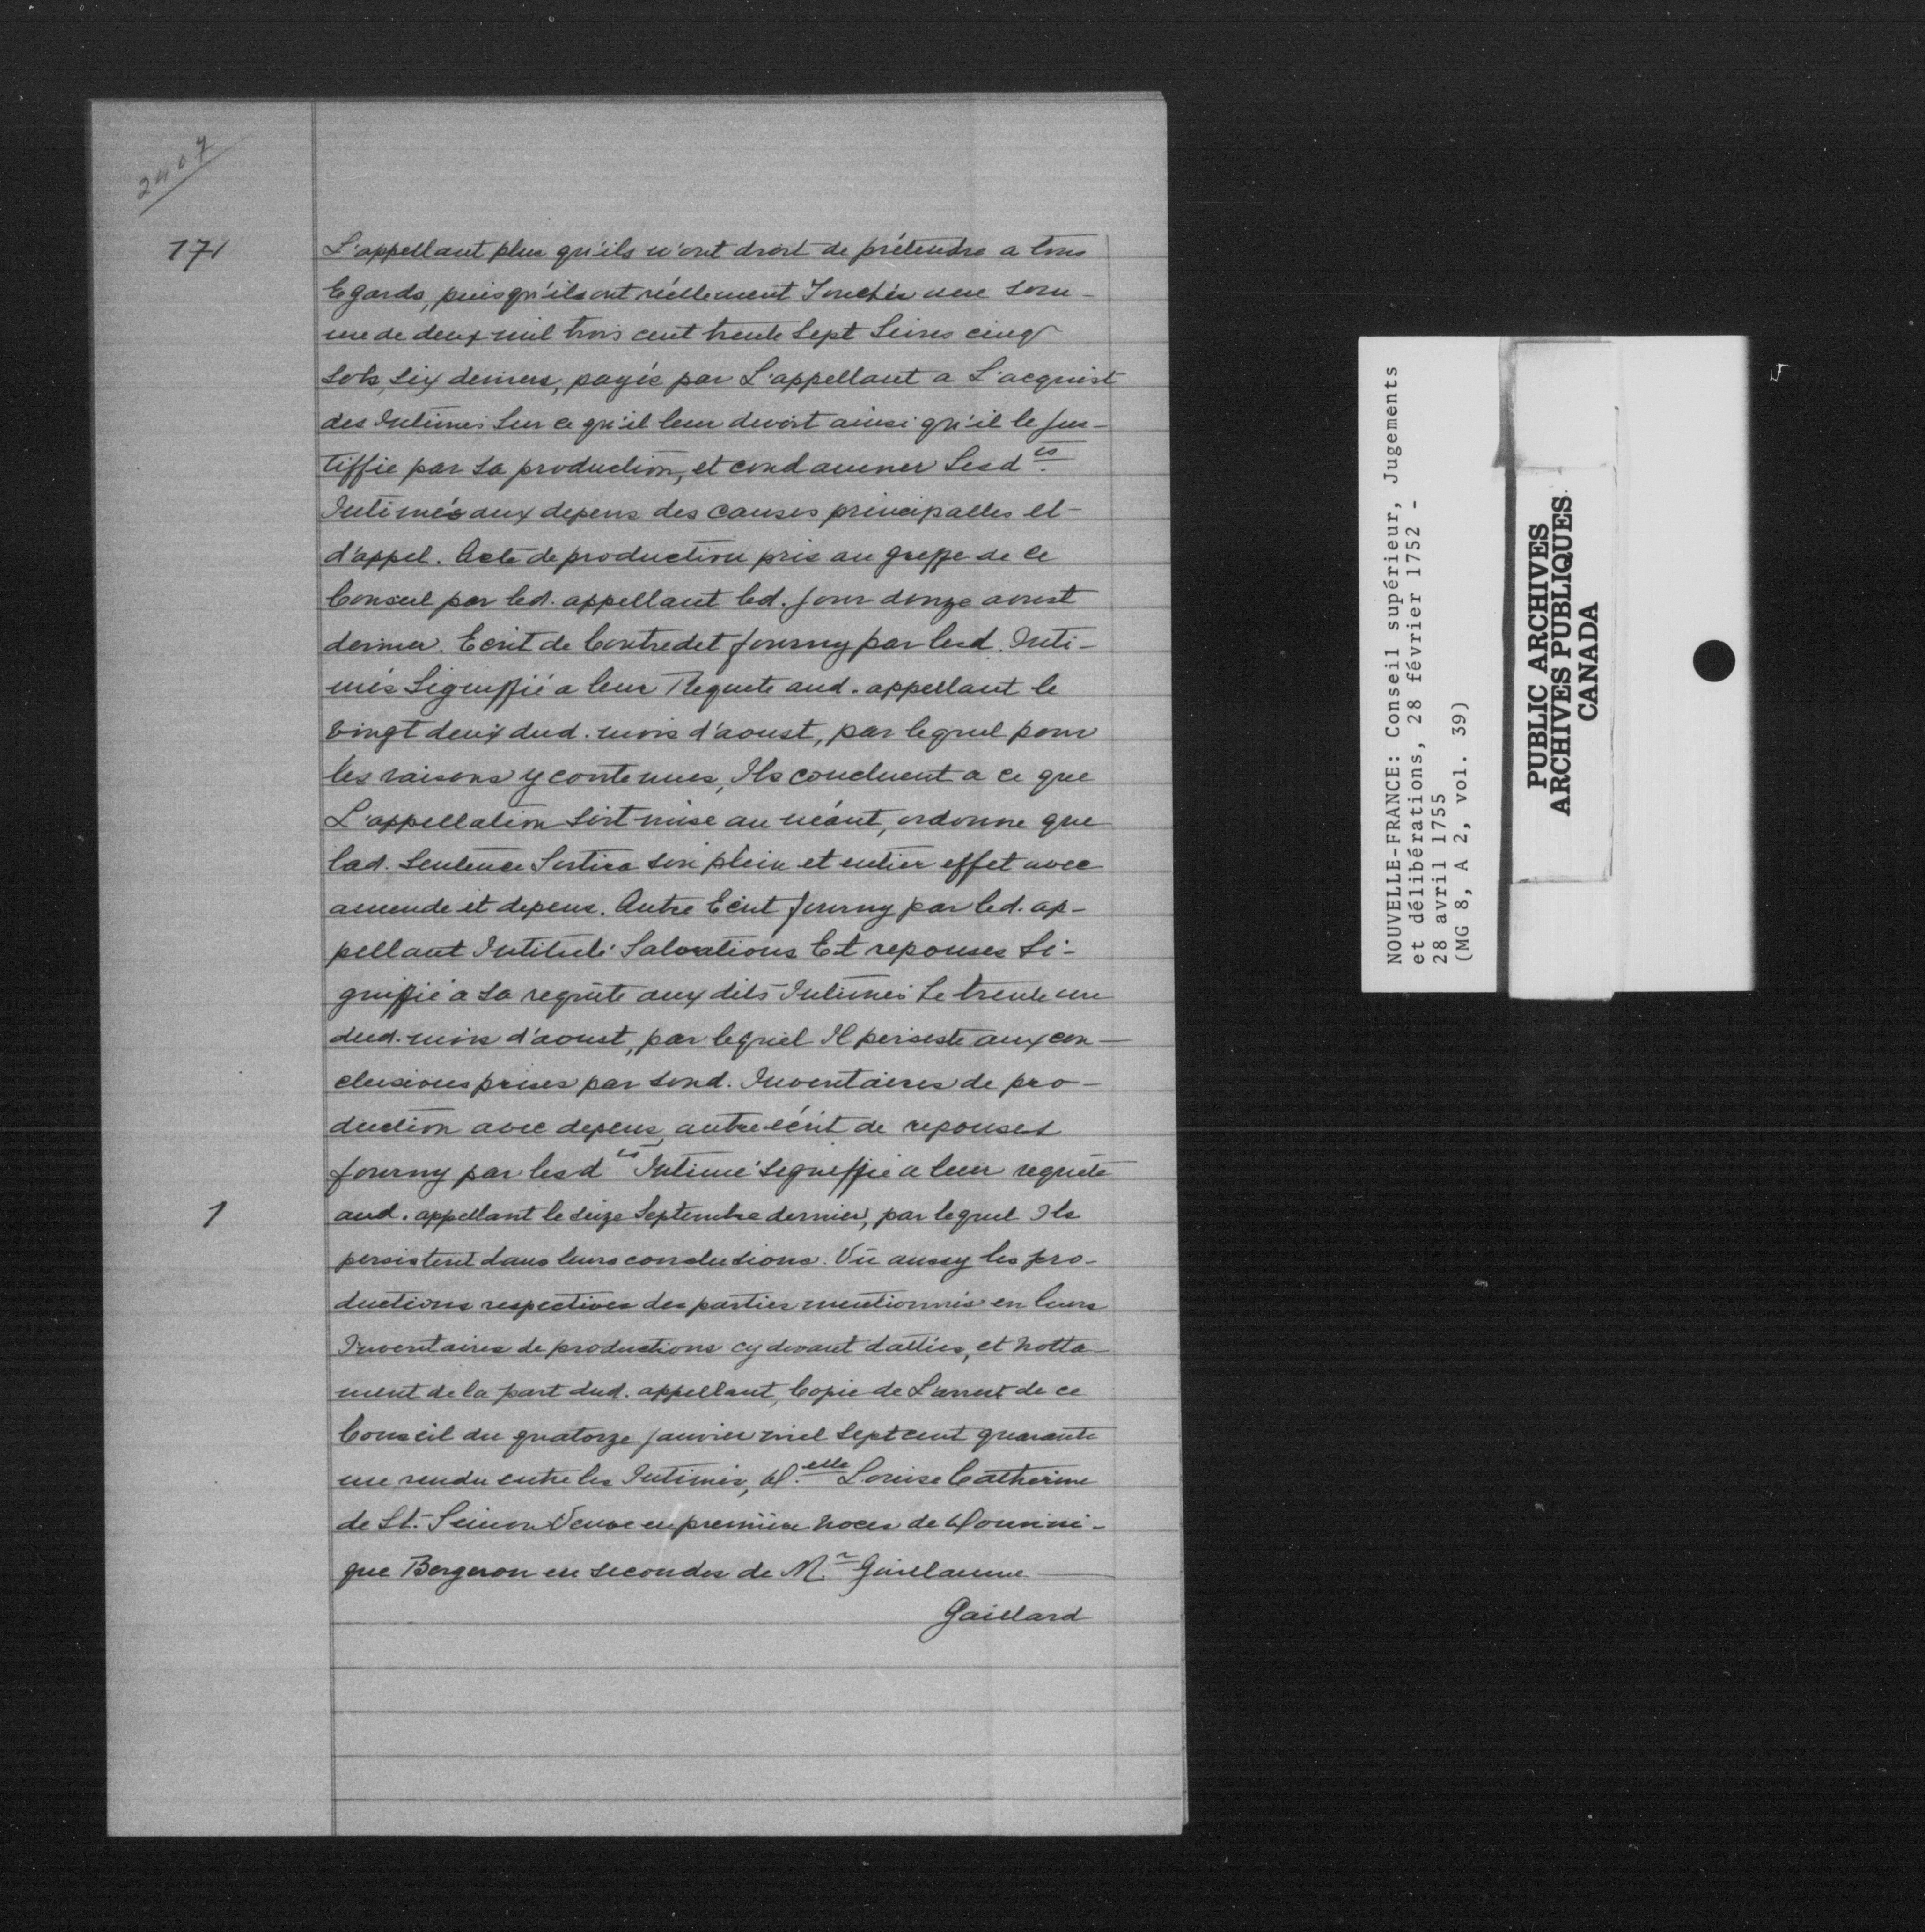 2407
171
L'appellant plus qu'ils n'ont droit de prétendre a tous
Egards, puisqu'ils ont réellement Touchés une som-
me de deux mil trois cent trente Sept Livres cinq
Sols, Six deniers, payée par L'appellant a L'acquist
des Intimés Sur ce qu'il leur devoit ainsi qu'il le jus-
tiffie par Sa production, et condamner Lesd.es
Intimés aux depens des causes principalles et
d'appel. Acte de production pris au greffe de Ce
Conseil par led. appellant led. jour douze aoust
dernier. Ecrit de Contredit fourny par lesd. Inti-
més Signiffié a leur Requete aud. appellant le
Vingt deux dud. mois d'aoust, par lequel pour
les raisons y contenues, Ils concluent a ce que
L'appellation Soit mise au néant, ordonne que
lad. Sentence Sortira Son plein et entier effet avec
amende et depens. Autre Ecrit fourny par led. ap-
pellant Intitulé Salvations Et reponses Si-
gniffié a Sa requête aux dits Intimés Le trente un
dud. mois d'aoust, par lequel Il persiste aux con-
clusions prises par Sond. Inventaires de pro-
duction avec depens, autre écrit de reponses
fourny par lesd es Intimé Signiffié a leur requête
1
aud. appellant le Seize Septembre dernier, par lequel Ils
persistent dans leurs conclusions. Vu aussy les pro-
ductions respectives des parties mentionnés en leurs
Inventaires de productions cy devant dattées, et notta-
ment de la part dud. appellant, Copie de L'arrest de ce
Conseil du quatorze janvier mil Sept cent quarante
une rendu entre les Intimés, D.elle Louise Catherine
de St. Simon Veuve en première noces de Domini-
que Bergeron en Secondes de Mr Guillaume
Gaillard
NOUVELLE-FRANCE: Conseil supérieur, Jugements
et délibérations, 28 février 1752 -
28 avril 1755
(MG 8, A 2, vol. 39)
PUBLIC ARCHIVES
ARCHIVES PUBLIQUES
CANADA